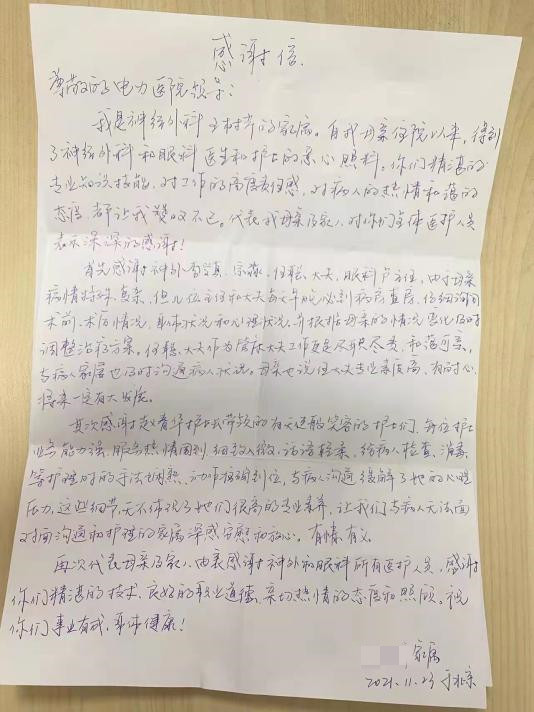 感谢信
尊敬的电力医院领导:
我是神经外科 的家属。自我母亲住院以来,得到
了神经外科和眼科医生和护士的悉心照料。你们精湛的
专业知识技能,对工作的高度责任感,对病人的热情和蔼的
态度,都让我赞叹不已。代表我母亲及家人对你们全体医护人员
表示深深的感谢!
首先感谢神外 任聪大夫,眼科卢主任,由于母亲
病情特殊复杂,但几位主任和大夫每天早晚必到病房查房,仔细询问
术前、术后情况,身体状况和心理状况,并根据母亲的情况变化及时
调整治疗方案。任聪大夫作为管床大夫工作更是尽职尽责,和蔼可亲,
与病人家属也及时沟通病人状况。母亲也说任大夫专业素质高,有耐心,
将来一定有大发展。
其次感谢赵春华护士长带领的有天使般笑容的护士们,每位护士
业务能力强,服务热情周到细致入微,话语轻柔,给病人检查、消毒
等护理时的手法娴熟,动作准确到位,与病人沟通缓解了她的心理
压力,这些细节,无不体现了她们很高的专业素养,让我们与病人无法面
对面沟通和护理的家属深感安慰和放心。有情有义。
再次代表母亲及家人由衷感谢神外和眼科所有医护人员,感谢
你们精湛的技术、良好的职业道德、亲切热情的态度和照顾。祝
你们事业有成,身体健康!
家属
2021.11.23 于北京